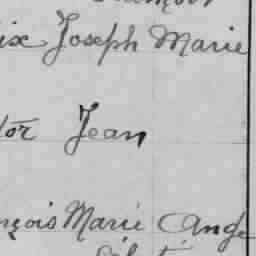 ix Joseph Marie
tor Jean
nçois Marie Ange